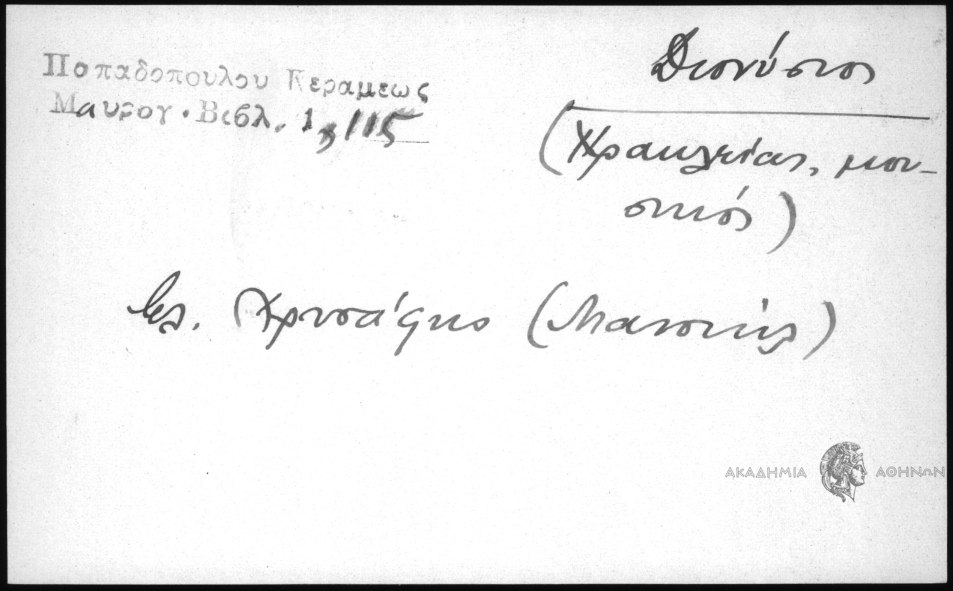 Παπαδοπούλου Κεραμεως
Μαυρογ. Βιβλ. 1, 115
Διονύσιος
(Ηρακλείας, μου-
σικός)
βλ. Χρυσάφης (Μανουήλ)
ΑΚΑΔΗΜΙΑ ΑΘΗΝΩΝ